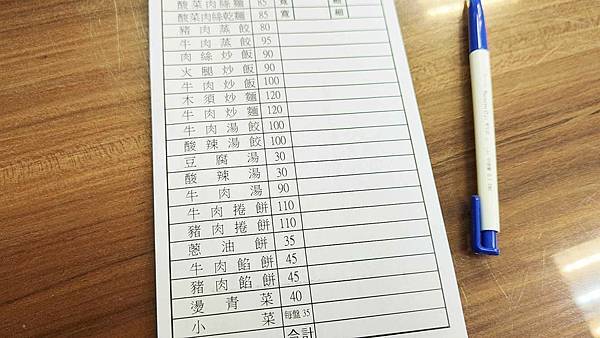 酸菜肉絲麵 85 寬 細
酸菜肉絲乾麵 85 寬 細
豬肉蒸餃 80
牛肉蒸餃 95
肉絲炒飯 90
火腿炒飯 90
牛肉炒飯 100
木須炒麵 120
牛肉炒麵 120
牛肉湯餃 100
酸辣湯餃 100
豆腐湯 30
酸辣湯 30
牛肉湯 90
牛肉捲餅 110
豬肉捲餅 110
蔥油餅 35
牛肉餡餅 45
豬肉餡餅 45
燙青菜 40
小菜 每盤 35
合計